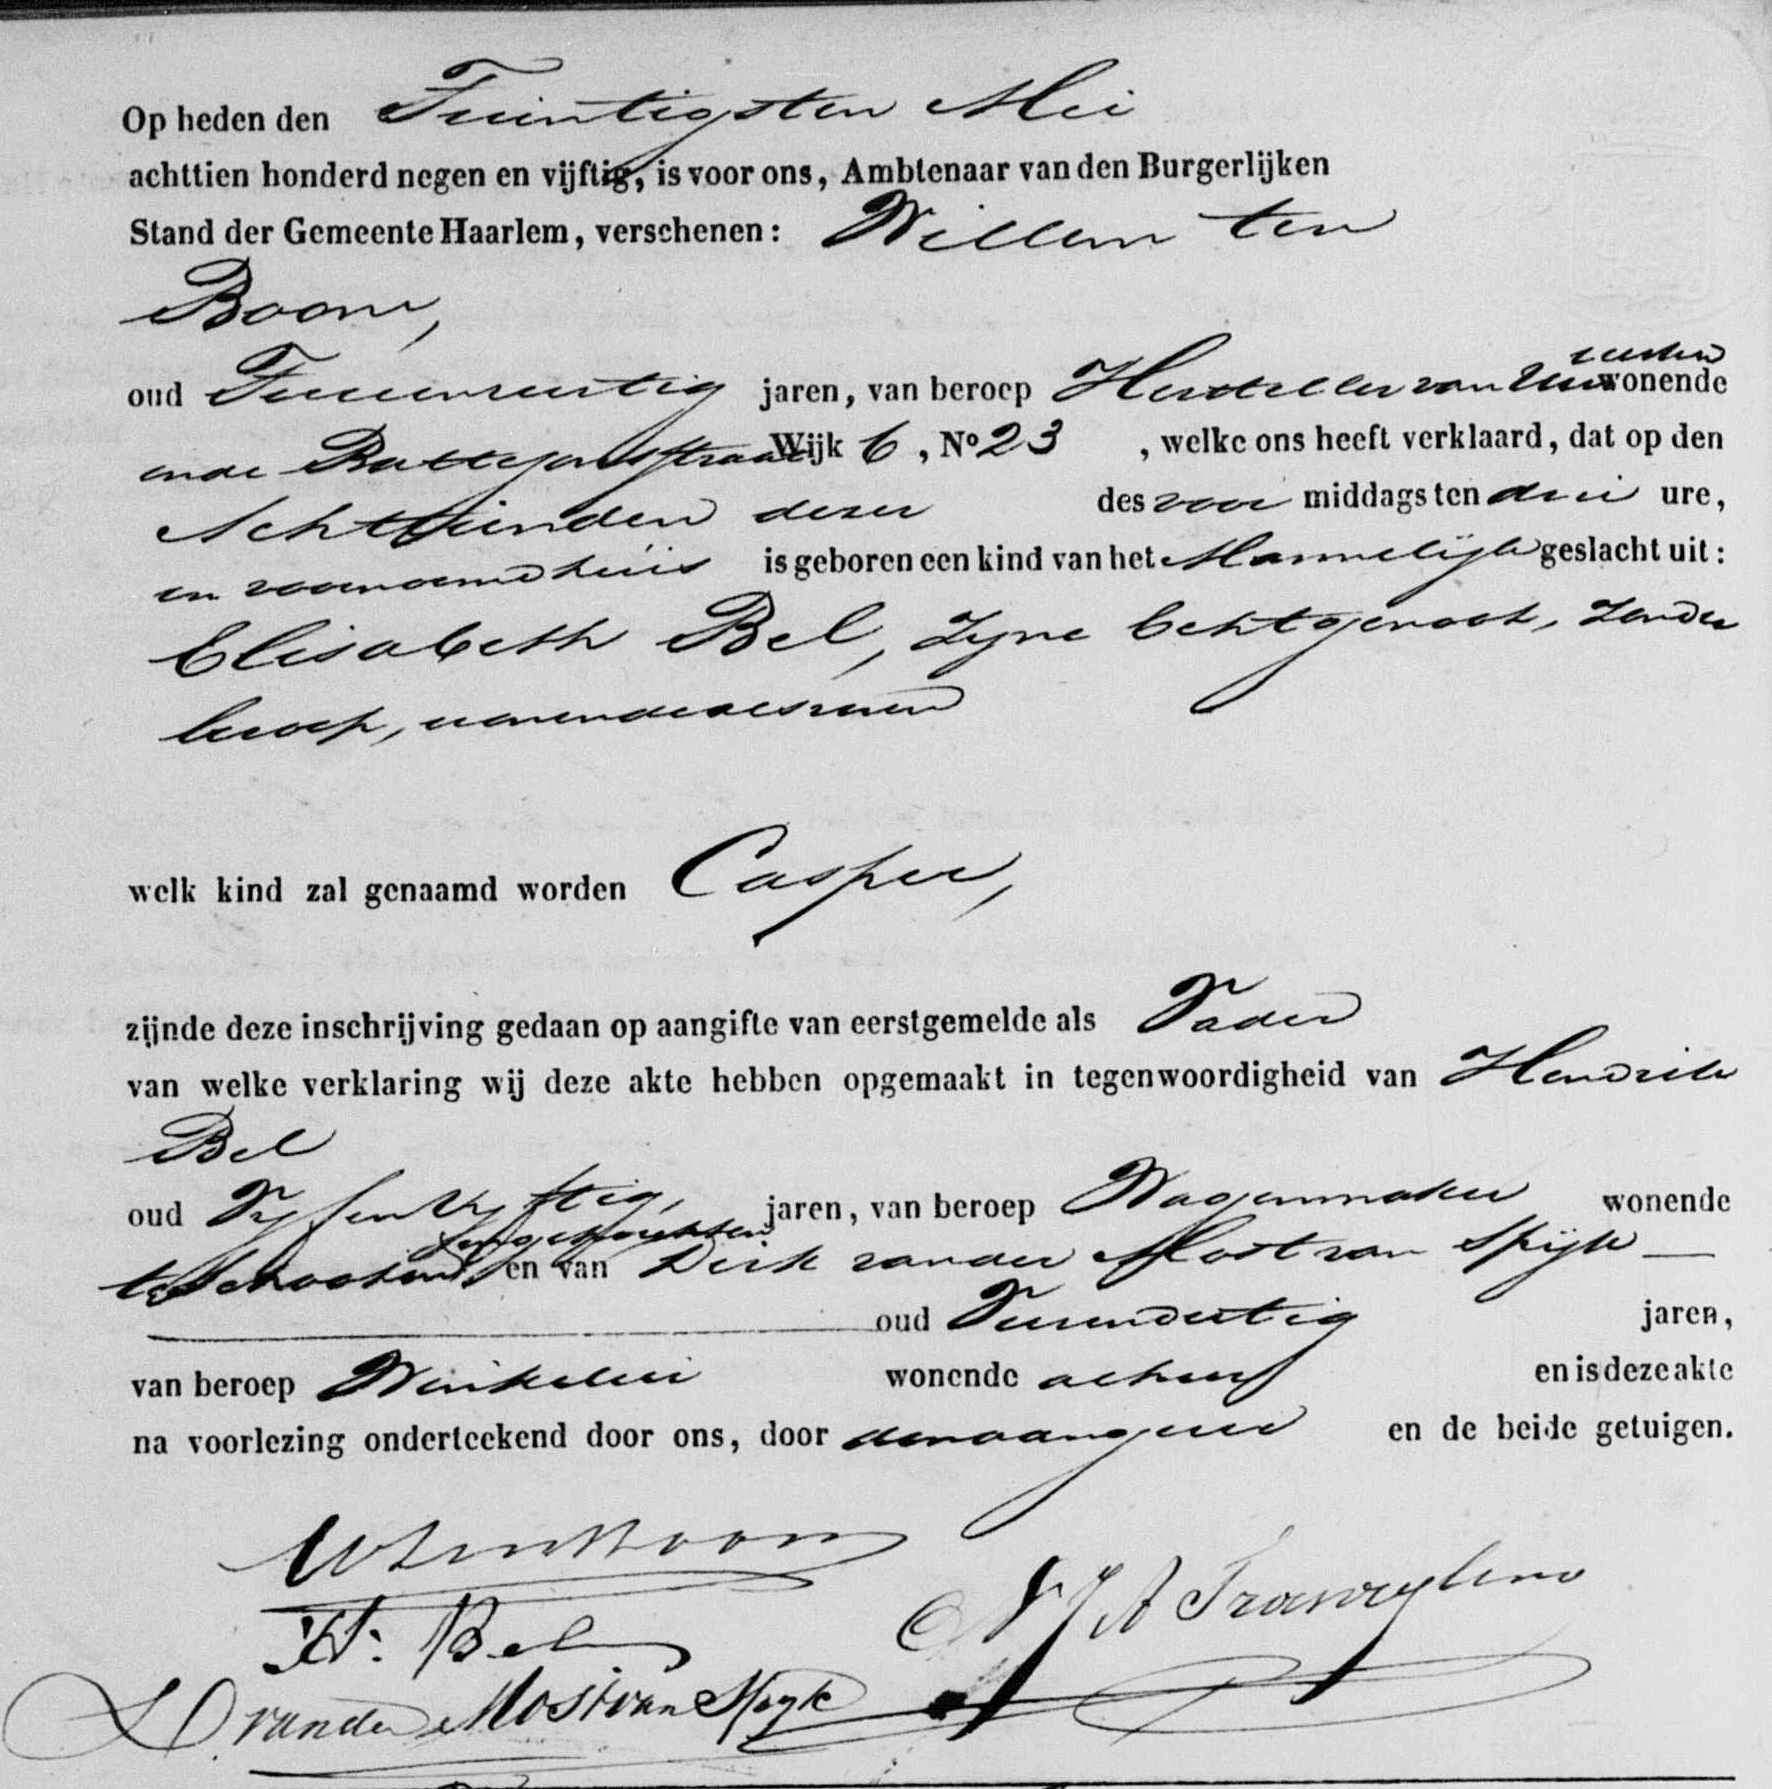 Op heden den Twintigsten Mei
achttien honderd negen en vijftig, is voor ons, Ambtenaar van den Burgerlijken
Stand der Gemeente Haarlem, verschenen: Willem ten
Boom,
oud jaren, van beroep Hersteller van wonende
Wijk 6, No 23, welke ons heeft verklaard, dat op den
Achttienden dezer des voor middags ten drie ure,
in voornoemd huis is geboren een kind van het Mannelijk geslacht uit:
Elisabeth Bel, zyne Echtgenoot, zonder
beroep,
welk kind zal genaamd worden Casper,
zijnde deze inschrijving gedaan op aangifte van eerstgemelde als Vader
van welke verklaring wij deze akte hebben opgemaakt in tegenwoordigheid van Hendrik
Bel
oud Vyfenvyftig, jaren, van beroep Wagenmaker wonende
en van Dirk van der Most van Spijk
oud jaren,
van beroep Winkelier wonende alhier en is deze akte
na voorlezing onderteekend door ons, door den aangever en de beide getuigen.
W ten Boom
H. Bel
D van der Most van Spyk